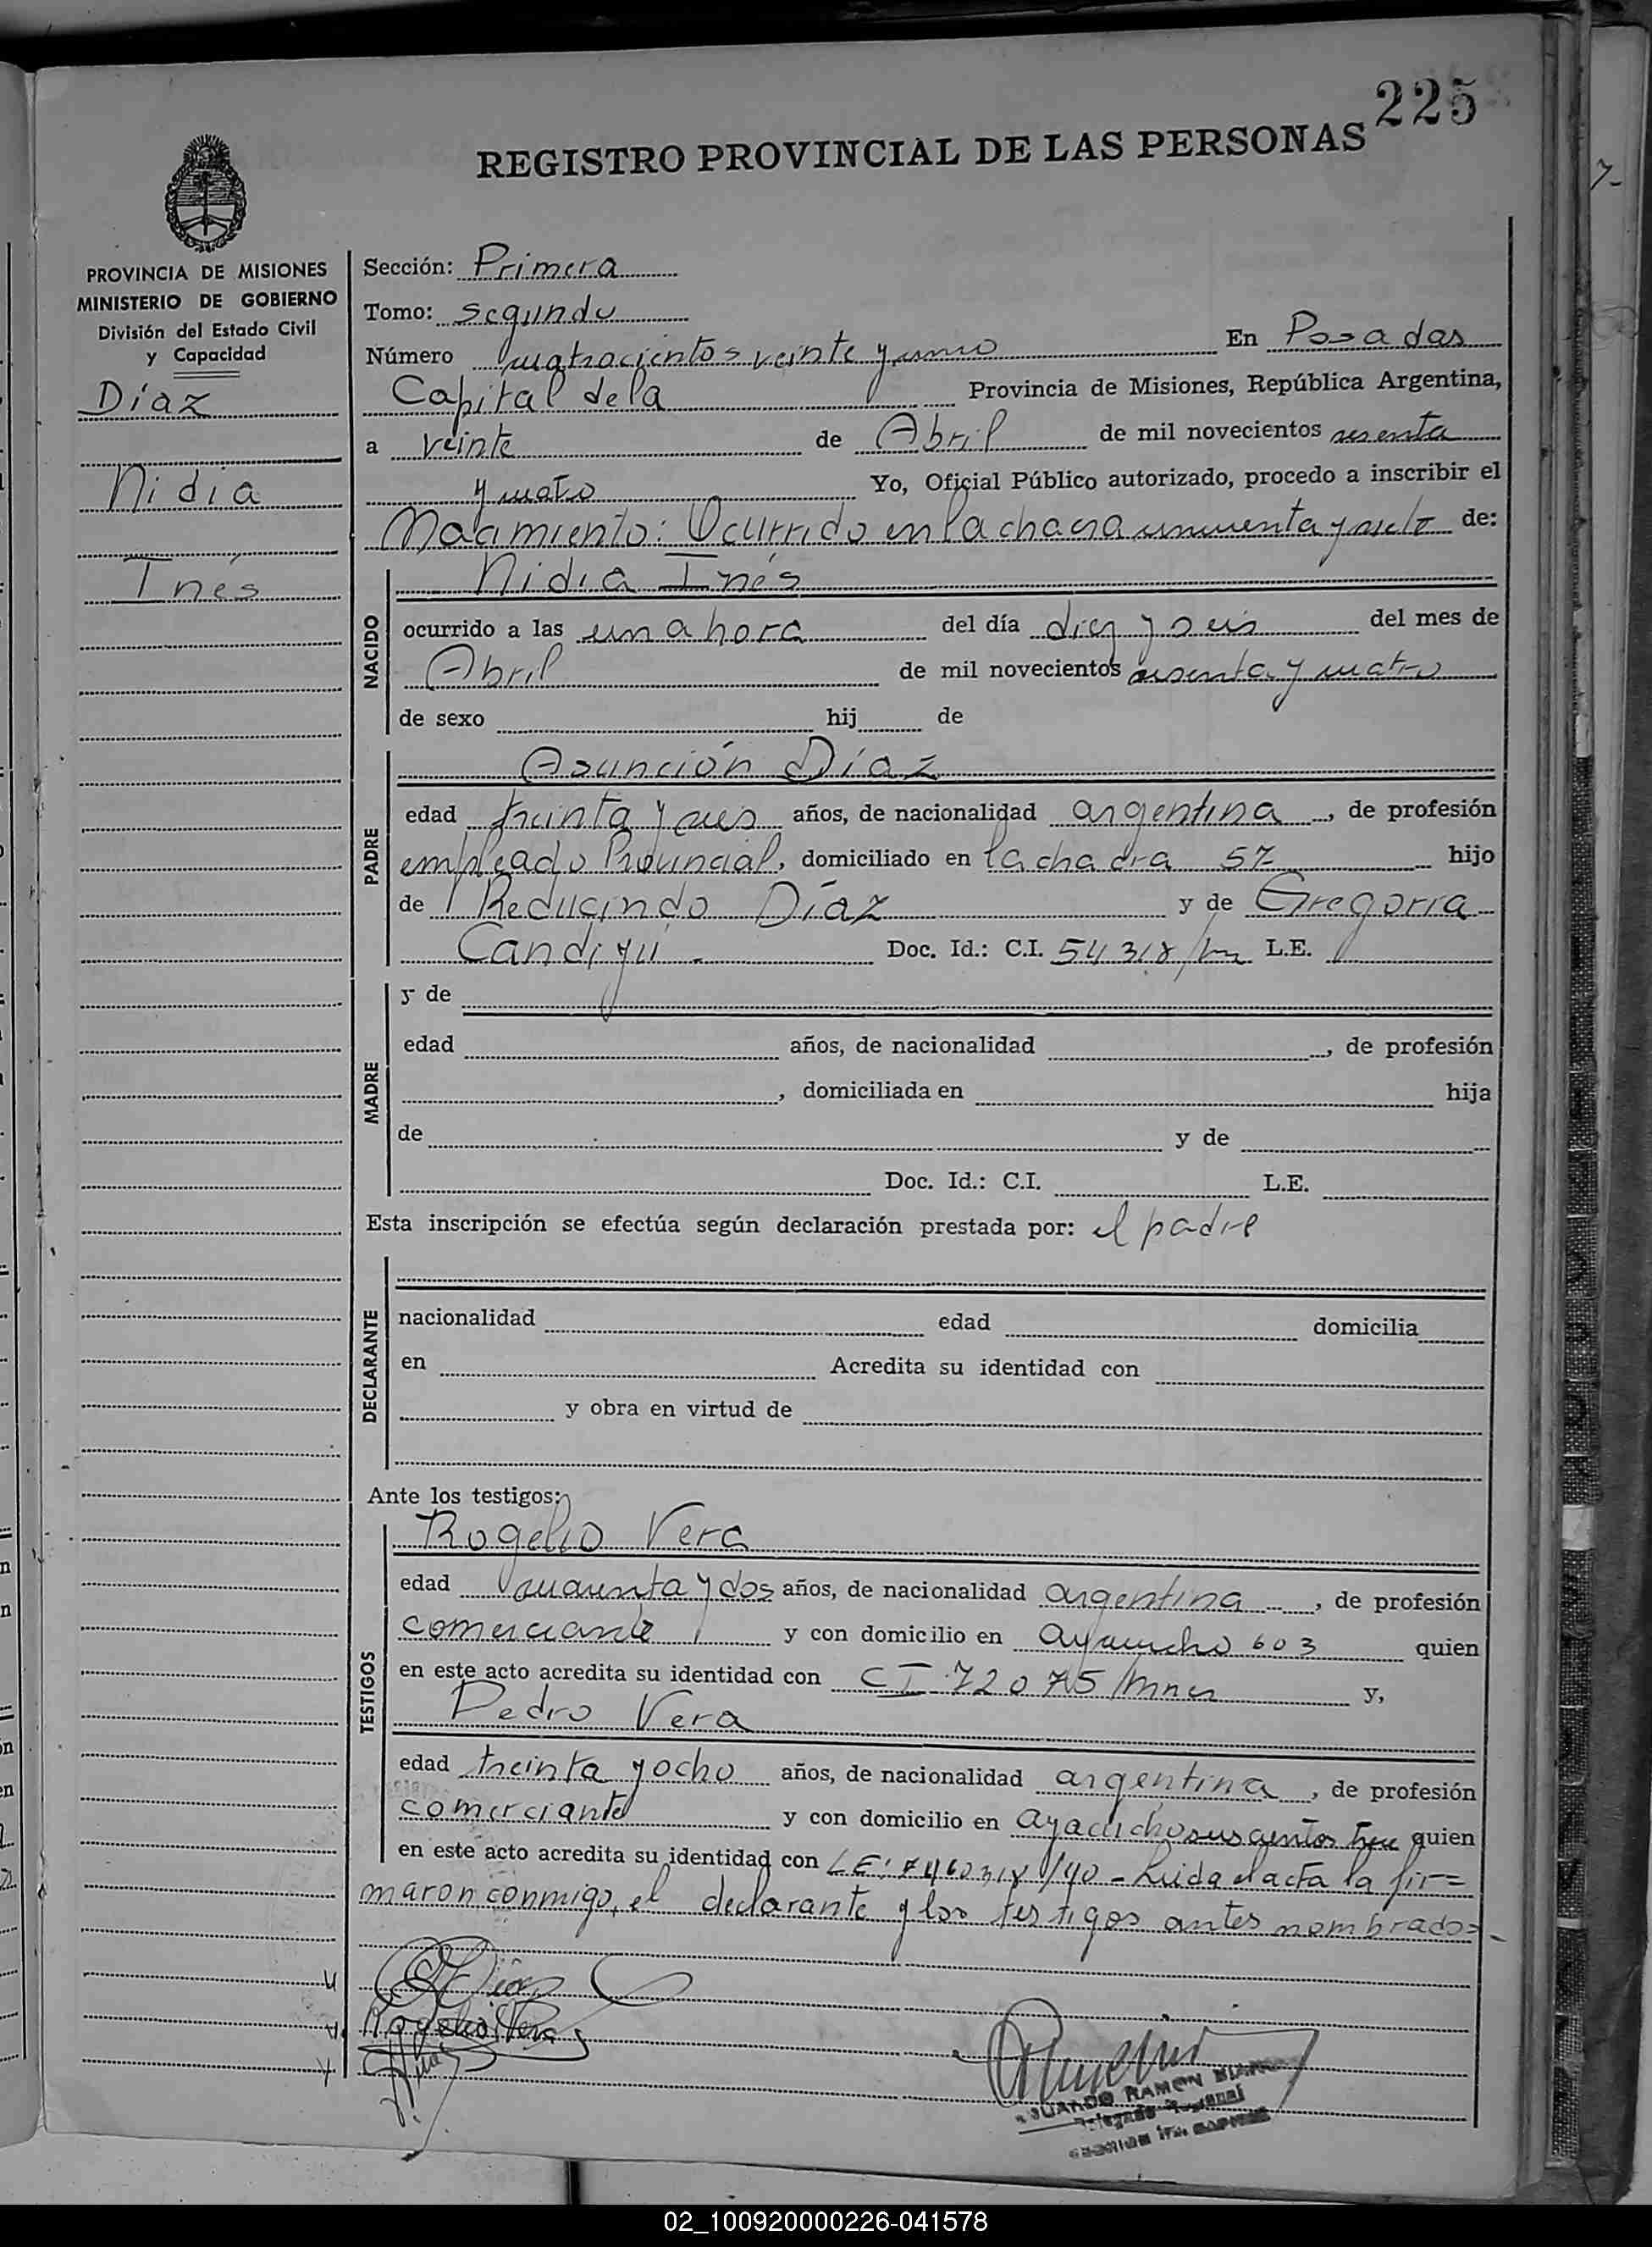 225
REGISTRO PROVINCIAL DE LAS PERSONAS
PROVINCIA DE MISIONES
MINISTERIO DE GOBIERNO
División del Estado Civil
y Capacidad
Díaz
Nidia
Inés
Sección: Primera
Tomo: segundo
Número cuatrocientos veinte y uno En Posadas
Capital de la Provincia de Misiones, República Argentina,
a veinte de Abril de mil novecientos sesenta
y cuatro Yo, Oficial Público autorizado, procedo a inscribir el
Nacimiento: Ocurrido en la chacra cincuenta y siete de:
NACIDO
Nidia Inés
ocurrido a las una hora del día diez y seis del mes de
Abril de mil novecientos sesenta y cuatro
de sexo hij de
PADRE
Asunción Díaz
edad treinta y seis años, de nacionalidad argentina, de profesión
empleado Provincial, domiciliado en la chacra 57 hijo
de Reducindo Díaz y de Gregoria
Candiyú. Doc. Id.: C.I. 54318/ L.E.
MADRE
y de
edad años, de nacionalidad , de profesión
, domiciliada en hija
de y de
Doc. Id.: C.I. L.E.
Esta inscripción se efectúa según declaración prestada por: el padre
DECLARANTE
nacionalidad edad domicilia
en Acredita su identidad con
y obra en virtud de
Ante los testigos:
TESTIGOS
Rogelio Vera
edad cuarenta y dos años, de nacionalidad argentina, de profesión
comerciante y con domicilio en ayacucho 603 quien
en este acto acredita su identidad con CI 72075/mnes y,
Pedro Vera
edad treinta y ocho años, de nacionalidad argentina, de profesión
comerciante y con domicilio en ayacucho seiscientos tres quien
en este acto acredita su identidad con LE: /40 - Leida el acta la fir=
maron conmigo, el declarante y los testigos antes nombrados-
Díaz
Rogelio Vera
RAMON
02_100920000226-041578